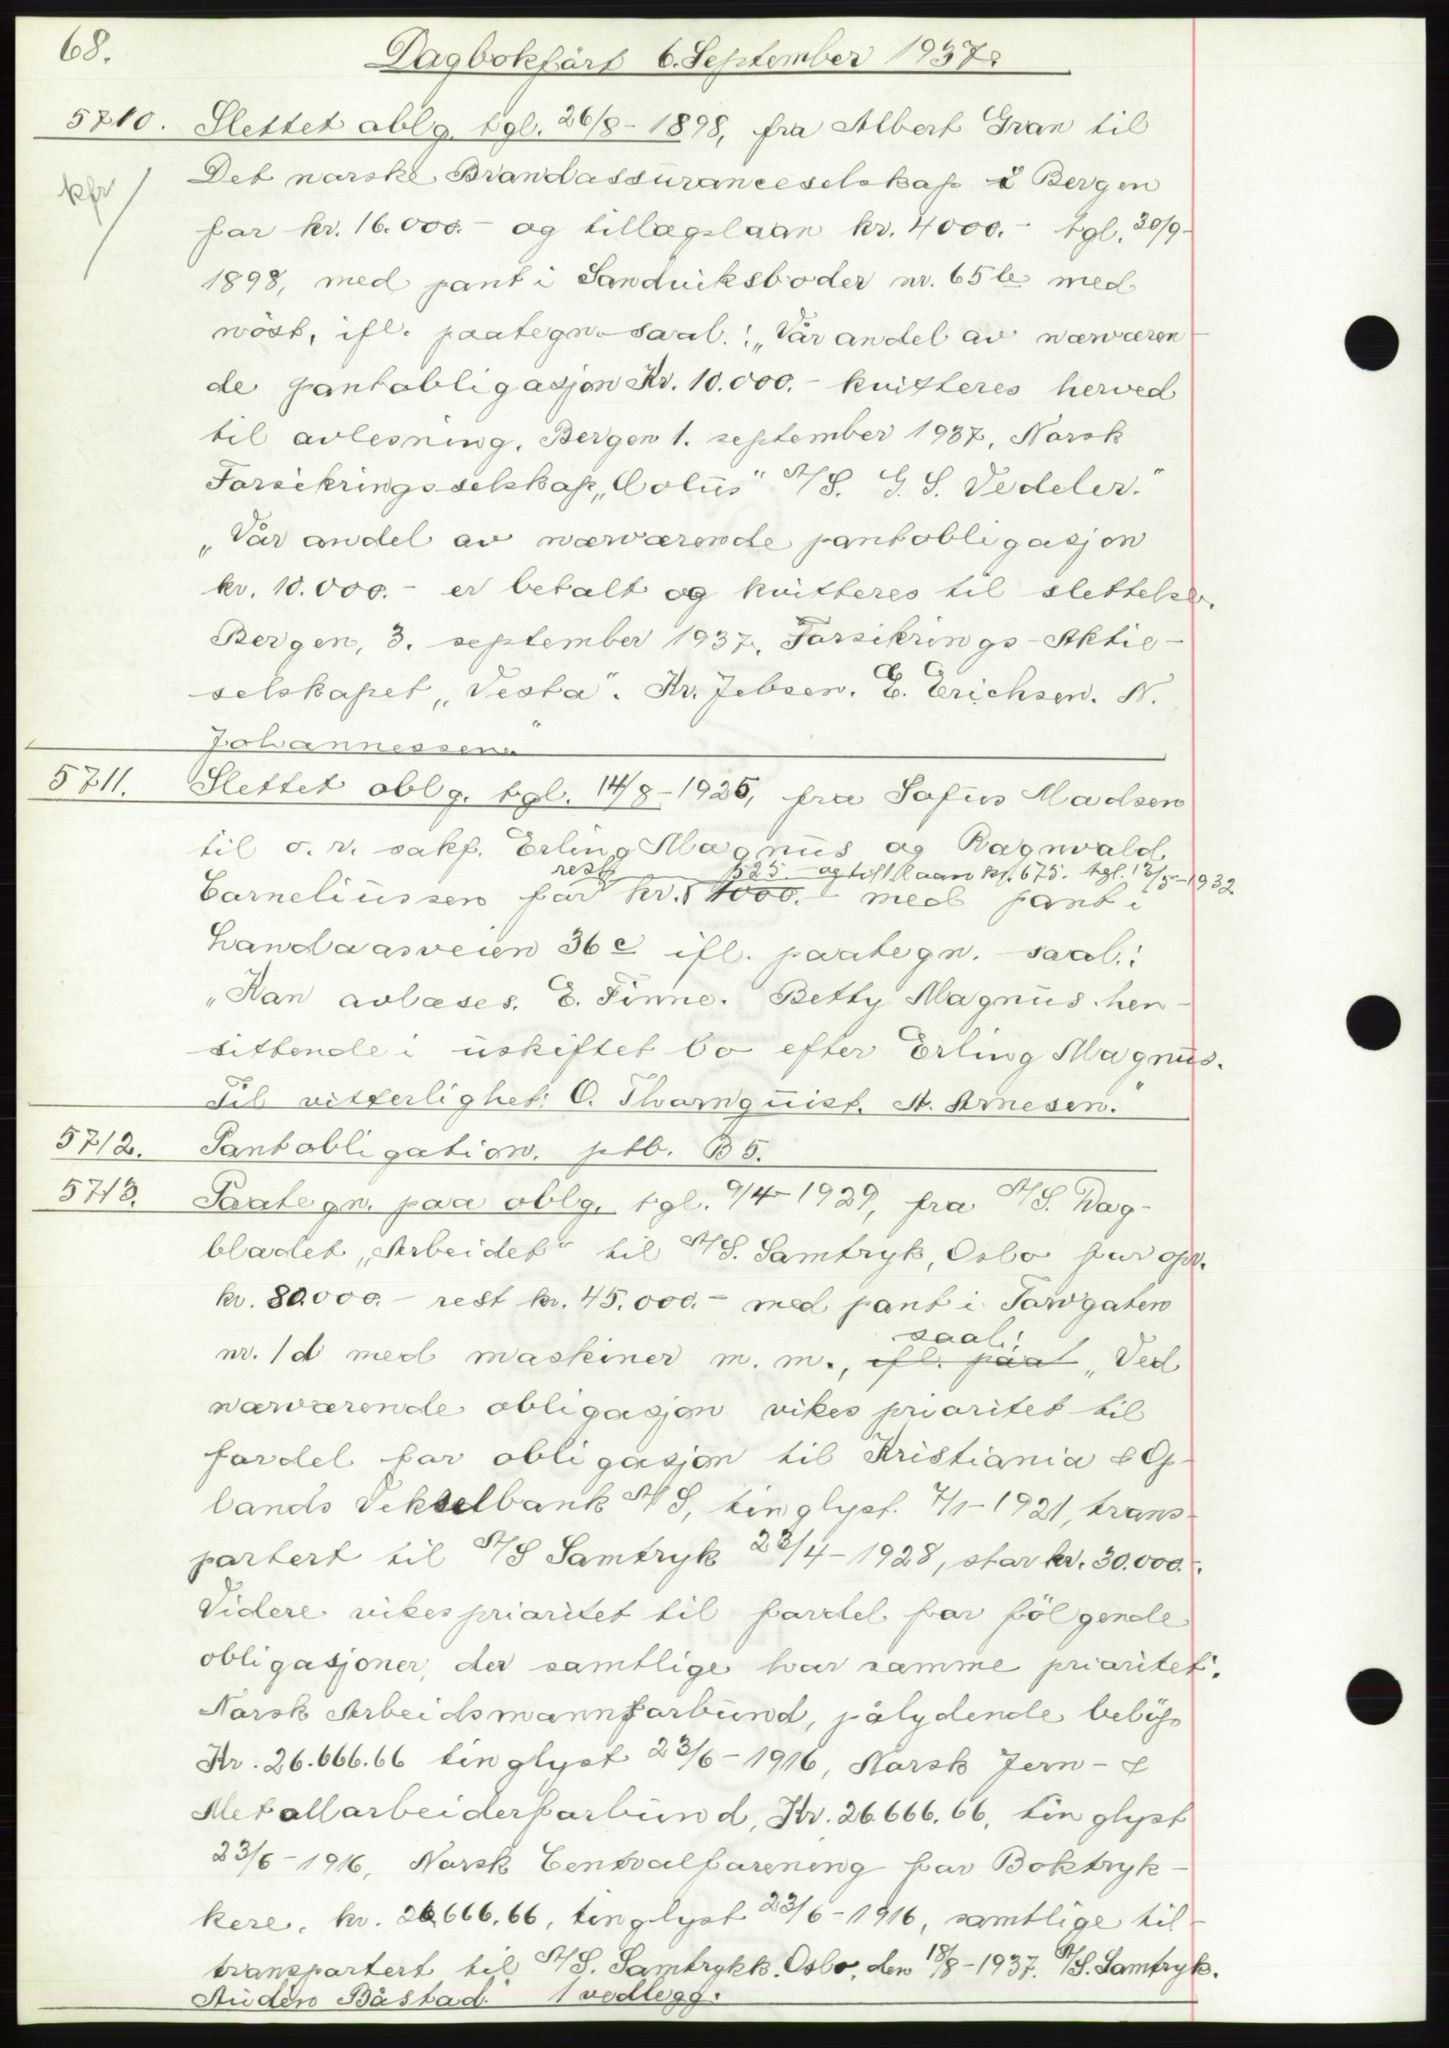 68.
Dagbokført 6. September 1937.
5710. Slettet oblg. tgl. 26/8 - 1898, fra Albert Gran til
kfr
Det norske Brandassuranceselskap i Bergen
for kr. 16.000.- og tillægslaan kr. 4000.- tgl. 30/9-
1898, med pant i Sandviksboder nr. 65 b med
nöst, ifl. paategn. saal.: „Vår andel av nærværen-
de pantobligasjon Kr. 10.000.- kvitteres herved
til avlesning. Bergen 1. september 1937. Norsk
Forsikringsselskap „Æolus" A/S. G. S. Vedeler."
„Vår andel av nærværende pantobligasjon
kr. 10.000.- er betalt og kvitteres til slettelse.
Bergen, 3. september 1937. Forsikrings-Aktie-
selskapet „Vesta". Kr. Jebsen. E. Erichsen. N.
Johannessen."
5711. Slettet oblg. tgl. 14/8 - 1925, fra Sofus Madsen
til o. r. sakf. Erling Magnus og Ragnvald
rest 525.- og till.laan kr. 675. tgl. 13/5-1932
Corneliussen for kr. 1000.- med pant i
Landaasveien 36 c ifl. paategn. saal.:
„Kan avlæses. E. Finne. Betty Magnus hen-
sittende i uskiftet bo efter Erling Magnus.
Til vitterlighet: O. Thornquist. A. Arnesen."
5712. Pantobligation. ptb. B 5.
5713. Paategn. paa oblg. tgl. 9/4-1929, fra A/S. Dag-
bladet „Arbeidet" til A/S. Samtryk, Oslo for opr.
kr. 80.000.- rest kr. 45.000.- med pant i Torvgaten
saal:
nr. 1 d med maskiner m. m., ifl. paat „Ved
nærværende obligasjon vikes prioritet til
fordel for obligasjon til Kristiania & Op-
lands Vekselbank A/S, tinglyst 7/1-1921, trans-
portert til A/S Samtryk 23/4-1928, stor kr. 30.000.-.
Videre vikes prioritet til fordel for følgende
obligasjoner, der samtlige har samme prioritet:
Norsk Arbeidsmannsforbund, pålydende beløp
Kr. 26.666.66 tinglyst 23/6-1916, Norsk Jern- &
Metallarbeiderforbund, Kr. 26.666.66, tinglyst
23/6-1916, Norsk Centralforening for Boktryk-
kere, kr. 26.666.66, tinglyst 23/6-1916, samtlige til-
transportert til A/S. Samtrykk. Oslo, den 18/8-1937. A/S. Samtryk.
Auden Båstad." 1 vedlegg.